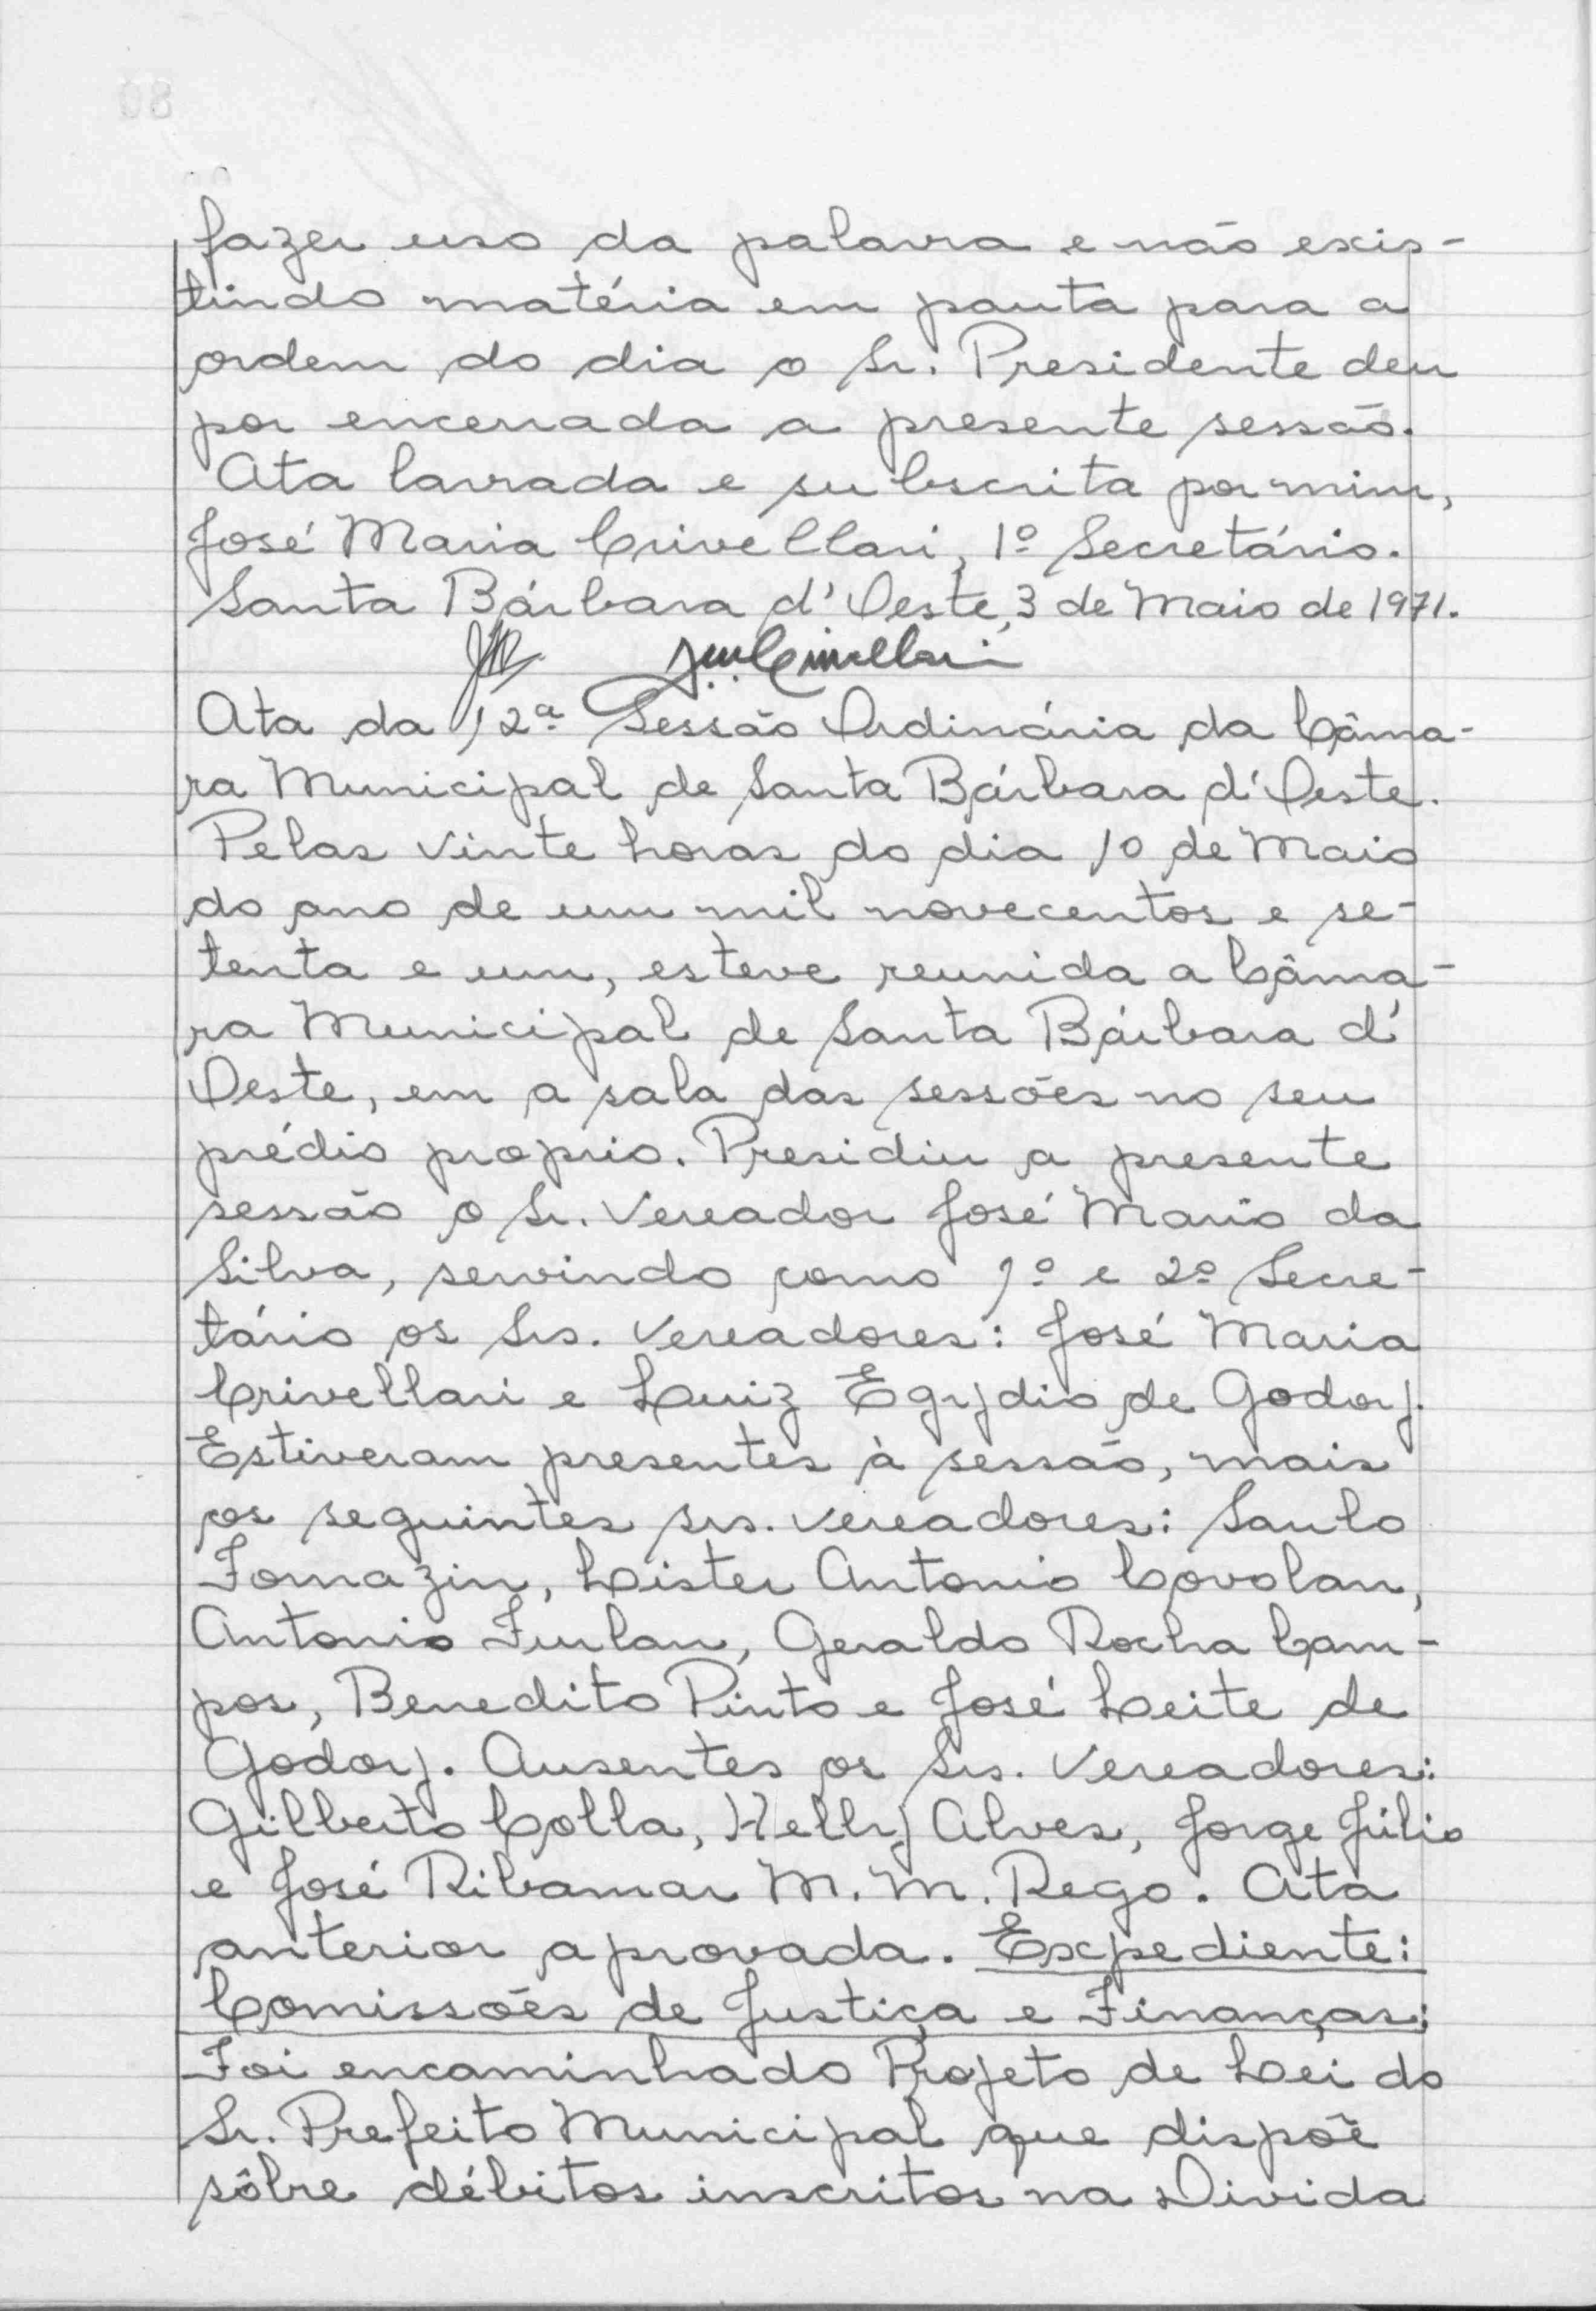 fazer uso da palavra e não exis-
tindo matéria em pauta para a
ordem do dia o Sr. Presidente deu
por encerrada a presente sessão.
Ata lavrada e subscrita por mim,
José Maria Crivellari, 1º Secretário.
Santa Bárbara d'Oeste, 3 de Maio de 1971.
Ata da 12ª Sessão Ordinária da Câma-
ra Municipal de Santa Bárbara d'Oeste.
Pelas vinte horas do dia 10 de Maio
do ano de um mil novecentos e se-
tenta e um, esteve reunida a Câma-
ra Municipal de Santa Bárbara d'
Oeste, em a sala das sessões no seu
prédio proprio. Presidiu a presente
sessão o Sr. Vereador José Mario da
Silva, servindo como 1º e 2º Secre-
tário os Srs. Vereadores: José Maria
Crivellari e Luiz Egydio de Godoy.
Estiveram presentes à sessão, mais
os seguintes srs. vereadores: Saulo
Fornazin, Lister Antonio Covolan,
Antonio Furlan, Geraldo Rocha Cam-
pos, Benedito Pinto e José Leite de
Godoy. Ausentes os Srs. Vereadores:
Gilberto Colla, Helly Alves, Jorge Júlio
e José Ribamar M. M. Rego. Ata
anterior aprovada. Expediente:
Comissões de Justiça e Finanças:
Foi encaminhado Projeto de Lei do
Sr. Prefeito Municipal que dispõe
sôbre débitos inscritos na Divida